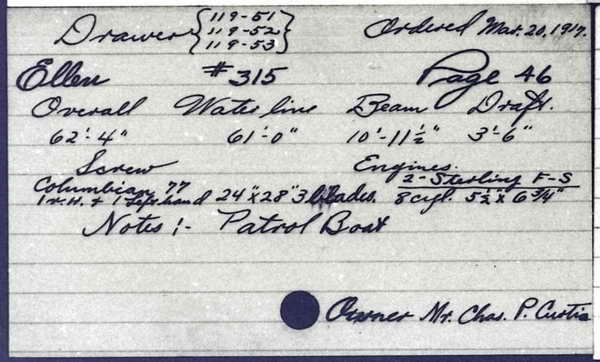 Drawer {119-51} Ordered Mar. 20, 1917.
{119-52}
{119-53}
Ellen #315 Page 46
Overall Water line Beam Draft.
62'-4" 61'-0" 10'-11½" 3'-6"
Screw Engines.
Columbian 77 2-Sterling F-S
1 R.H. + 1 Left hand 24"x28" 3 blades. 8 cyl. 5½"x6¾"
Notes:- Patrol Boat
Owner Mr. Chas. P. Curtis